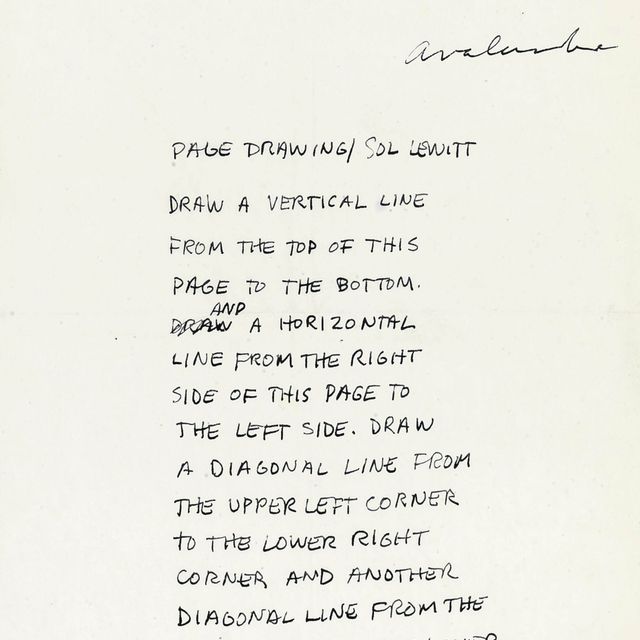 Avalanche
PAGE DRAWING/ SOL LEWITT
DRAW A VERTICAL LINE
FROM THE TOP OF THIS
PAGE TO THE BOTTOM.
AND
DRAW A HORIZONTAL
LINE FROM THE RIGHT
SIDE OF THIS PAGE TO
THE LEFT SIDE. DRAW
A DIAGONAL LINE FROM
THE UPPER LEFT CORNER
TO THE LOWER RIGHT
CORNER AND ANOTHER
DIAGONAL LINE FROM THE